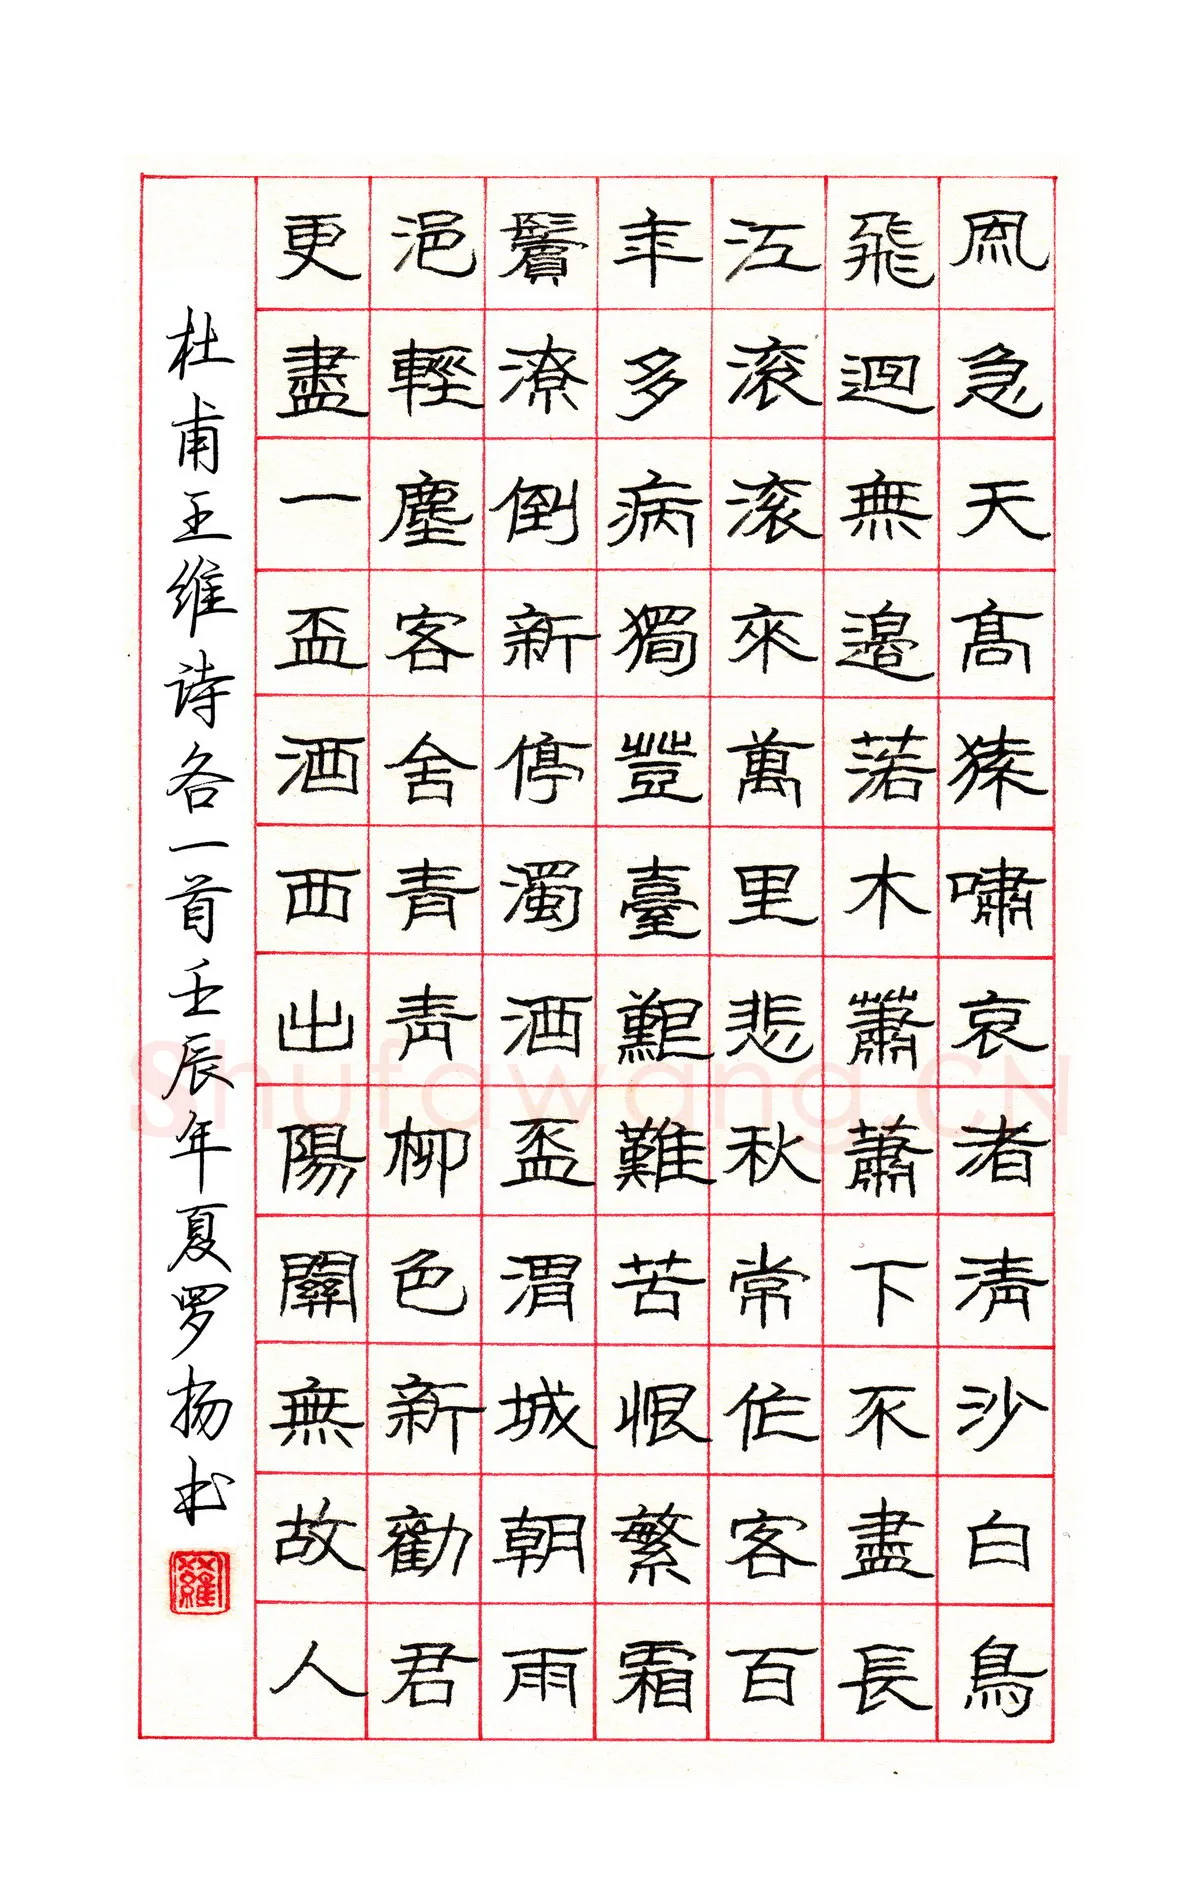 風急天髙猿嘯哀渚清沙白鳥
飛迴無邊落木蕭蕭下不盡長
江滚滚來萬里悲秋常作客百
年多病獨登臺艱難苦恨繁霜
鬢潦倒新停濁酒盃渭城朝雨
浥輕塵客舍青青柳色新勸君
更盡一盃酒西出陽關無故人
杜甫王维诗各一首壬辰年夏罗扬书
羅
Shufawang.CN